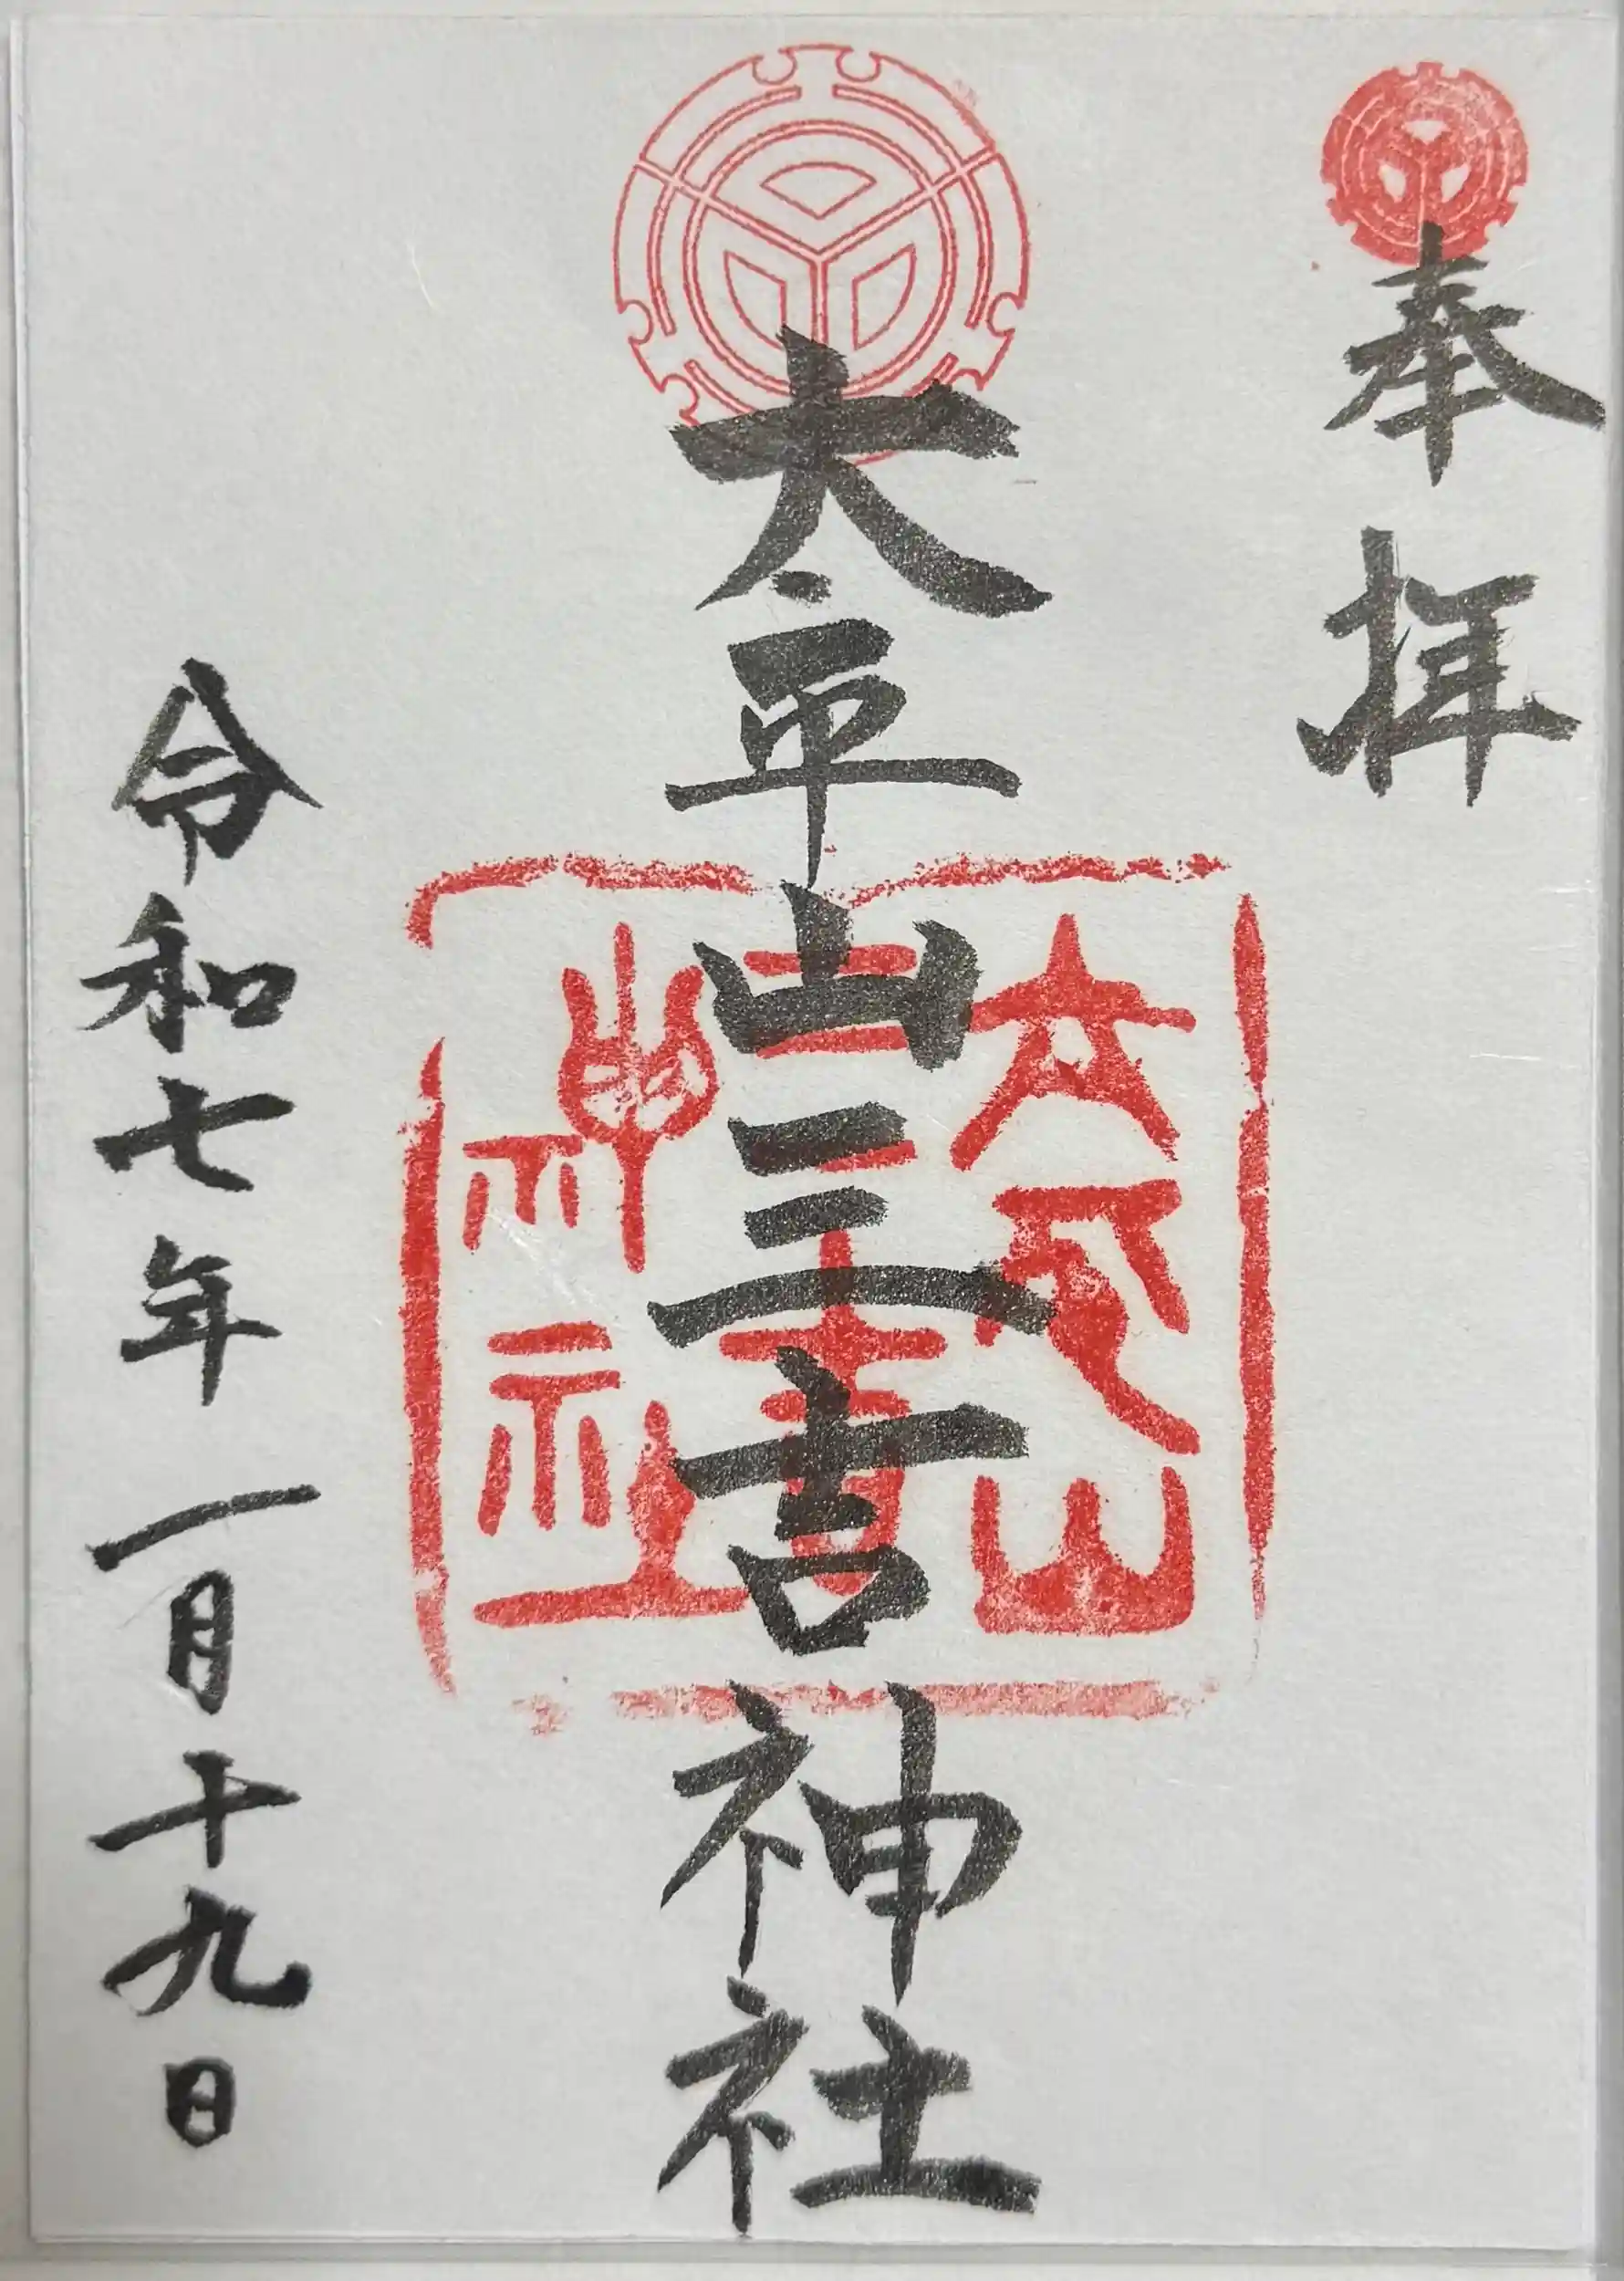 奉拝
太平山三吉神社
太平山三吉神社
令和七年一月十九日